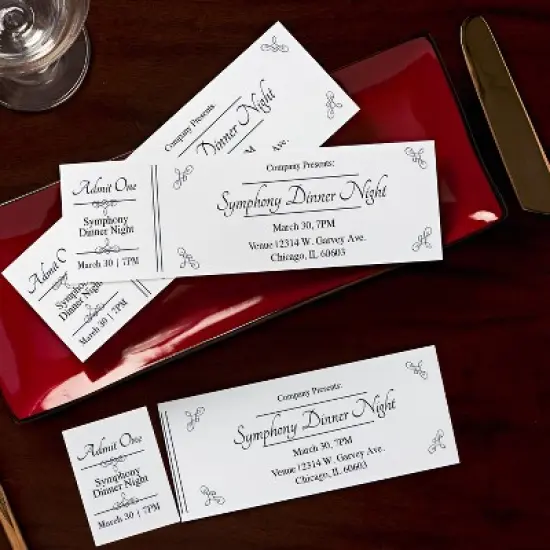 Company Presents:
Dinner Night
Ave.
Admit One
Symphony
Dinner Night
March 30 | 7PM
Company Presents:
Symphony Dinner Night
March 30, 7PM
Venue 12314 W. Garvey Ave.
Chicago, IL 60603
Admit One
Symphony
Dinner Night
March 30 | 7PM
Admit One
Symphony
Dinner Night
March 30 | 7PM
Company Presents:
Symphony Dinner Night
March 30, 7PM
Venue 12314 W. Garvey Ave.
Chicago, IL 60603